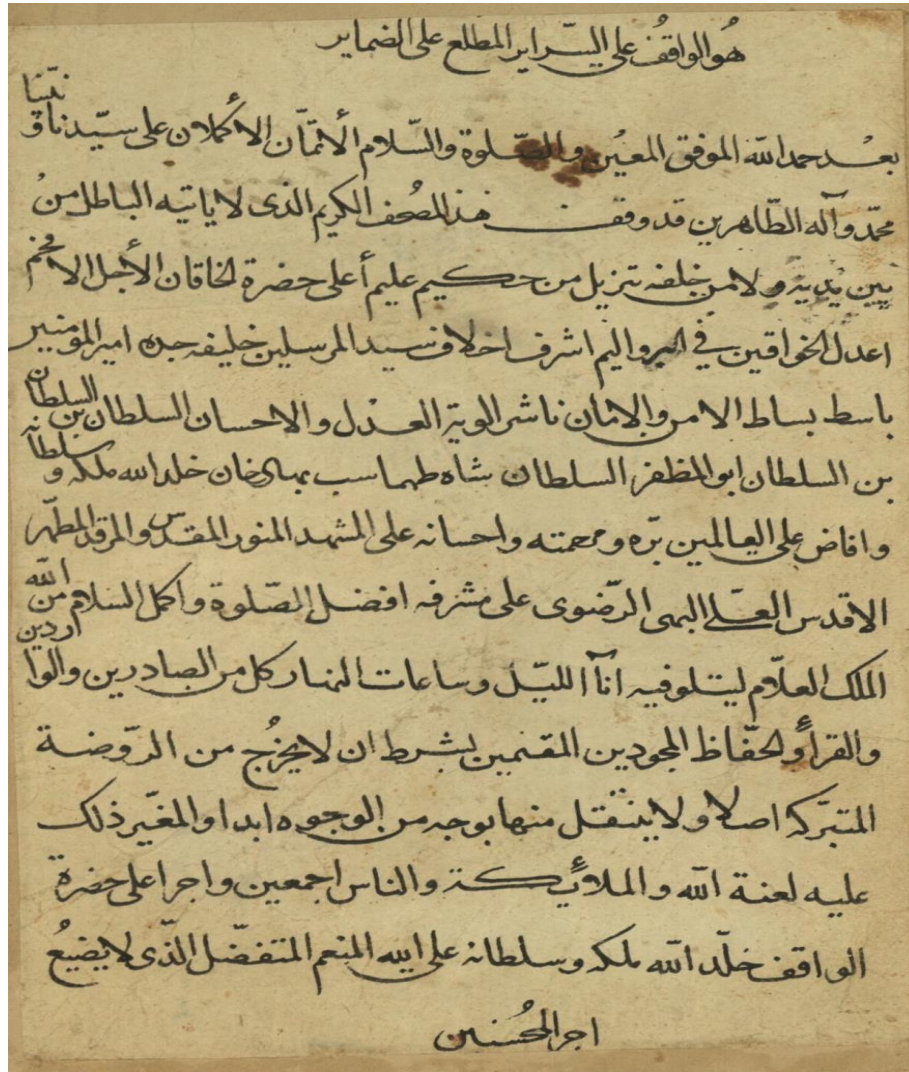 هو الواقف علي السراير المطلع على الضماير
بعد حمد الله الموفق المعين والصلوة والسلام الأتمان الاكملان على سيدنا و نبينا
محمد وآله الطاهرين قد وقف هذا المصحف الكريم الذى لا ياتيه الباطل من
بين يديه ولا من خلفه تنزيل من حكيم عليم أعلى حضرة الخاقان الأجل الافخم
اعدل الخواقين في البر واليم اشرف اخلاف سيد المرسلين خليفه جده امير المومنير
باسط بساط الامن والامان ناشر الوية العدل والاحسان السلطان بن السلطان
بن السلطان ابو المظفر السلطان شاه طهماسب بهادرخان خلد الله ملكه و سلطانه
وافاض على العالمين بره ومرحمته واحسانه على المشهد المنور المقدس والمرقد المطهر
الاقدس العلي البهى الرضوى على مشرفه افضل الصلوة واكمل السلام من الله
الملك العلام ليتلو فيه اناآ الليل وساعات النهار كل من الصادرين والواردين
والقرآء والحفاظ المجودين المقيمين بشرط ان لا يخرج من الروضة
المتبركه اصلا ولا ينتقل منها بوجه من الوجوه ابدا والمغير ذلك
عليه لعنة الله والملائكة والناس اجمعين واجر اعلى حضرة
الواقف خلد الله ملكه وسلطانه على الله المنعم المتفضل الذى لا يضيع
اجر المحسنين